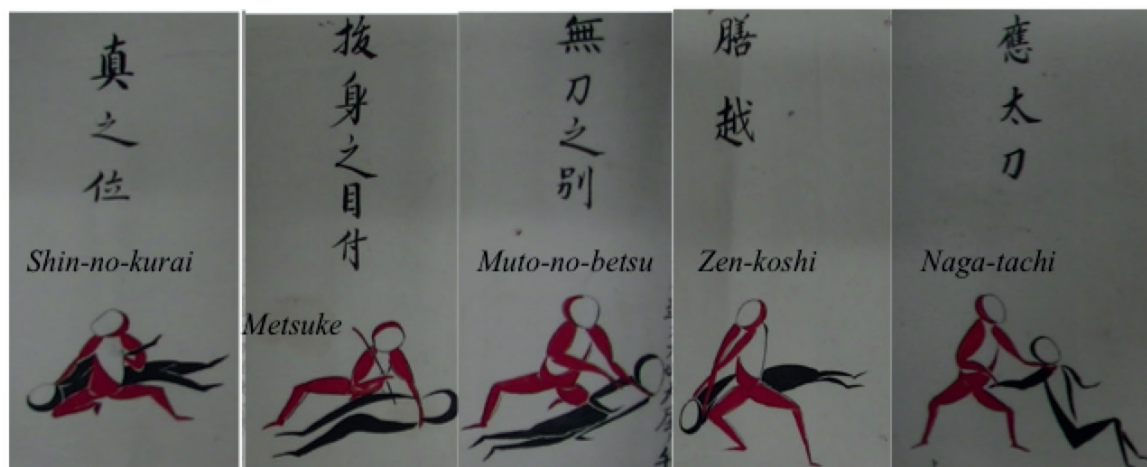 真之位
Shin-no-kurai
抜身之目付
Metsuke
無刀之別
Muto-no-betsu
膳越
Zen-koshi
應太刀
Naga-tachi